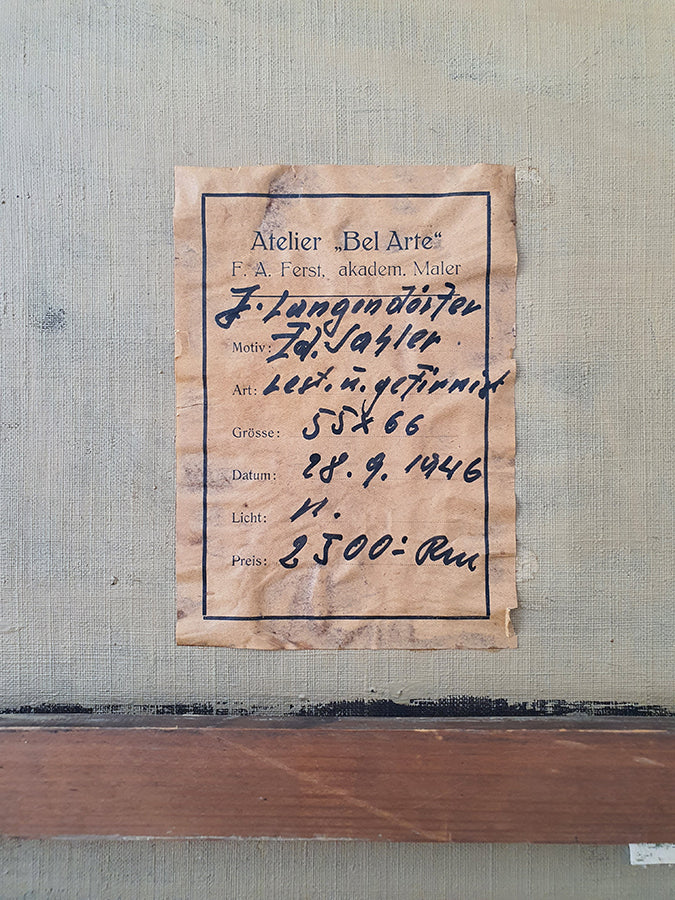 Atelier „Bel Arte“
F. A. Ferst, akadem. Maler
J. Langendörfer
Motiv: Zd. Sahler
Art: rest. u. gefirnist
Grösse: 55 x 66
Datum: 28. 9. 1946
Licht: n.
Preis: 2500.- Rm